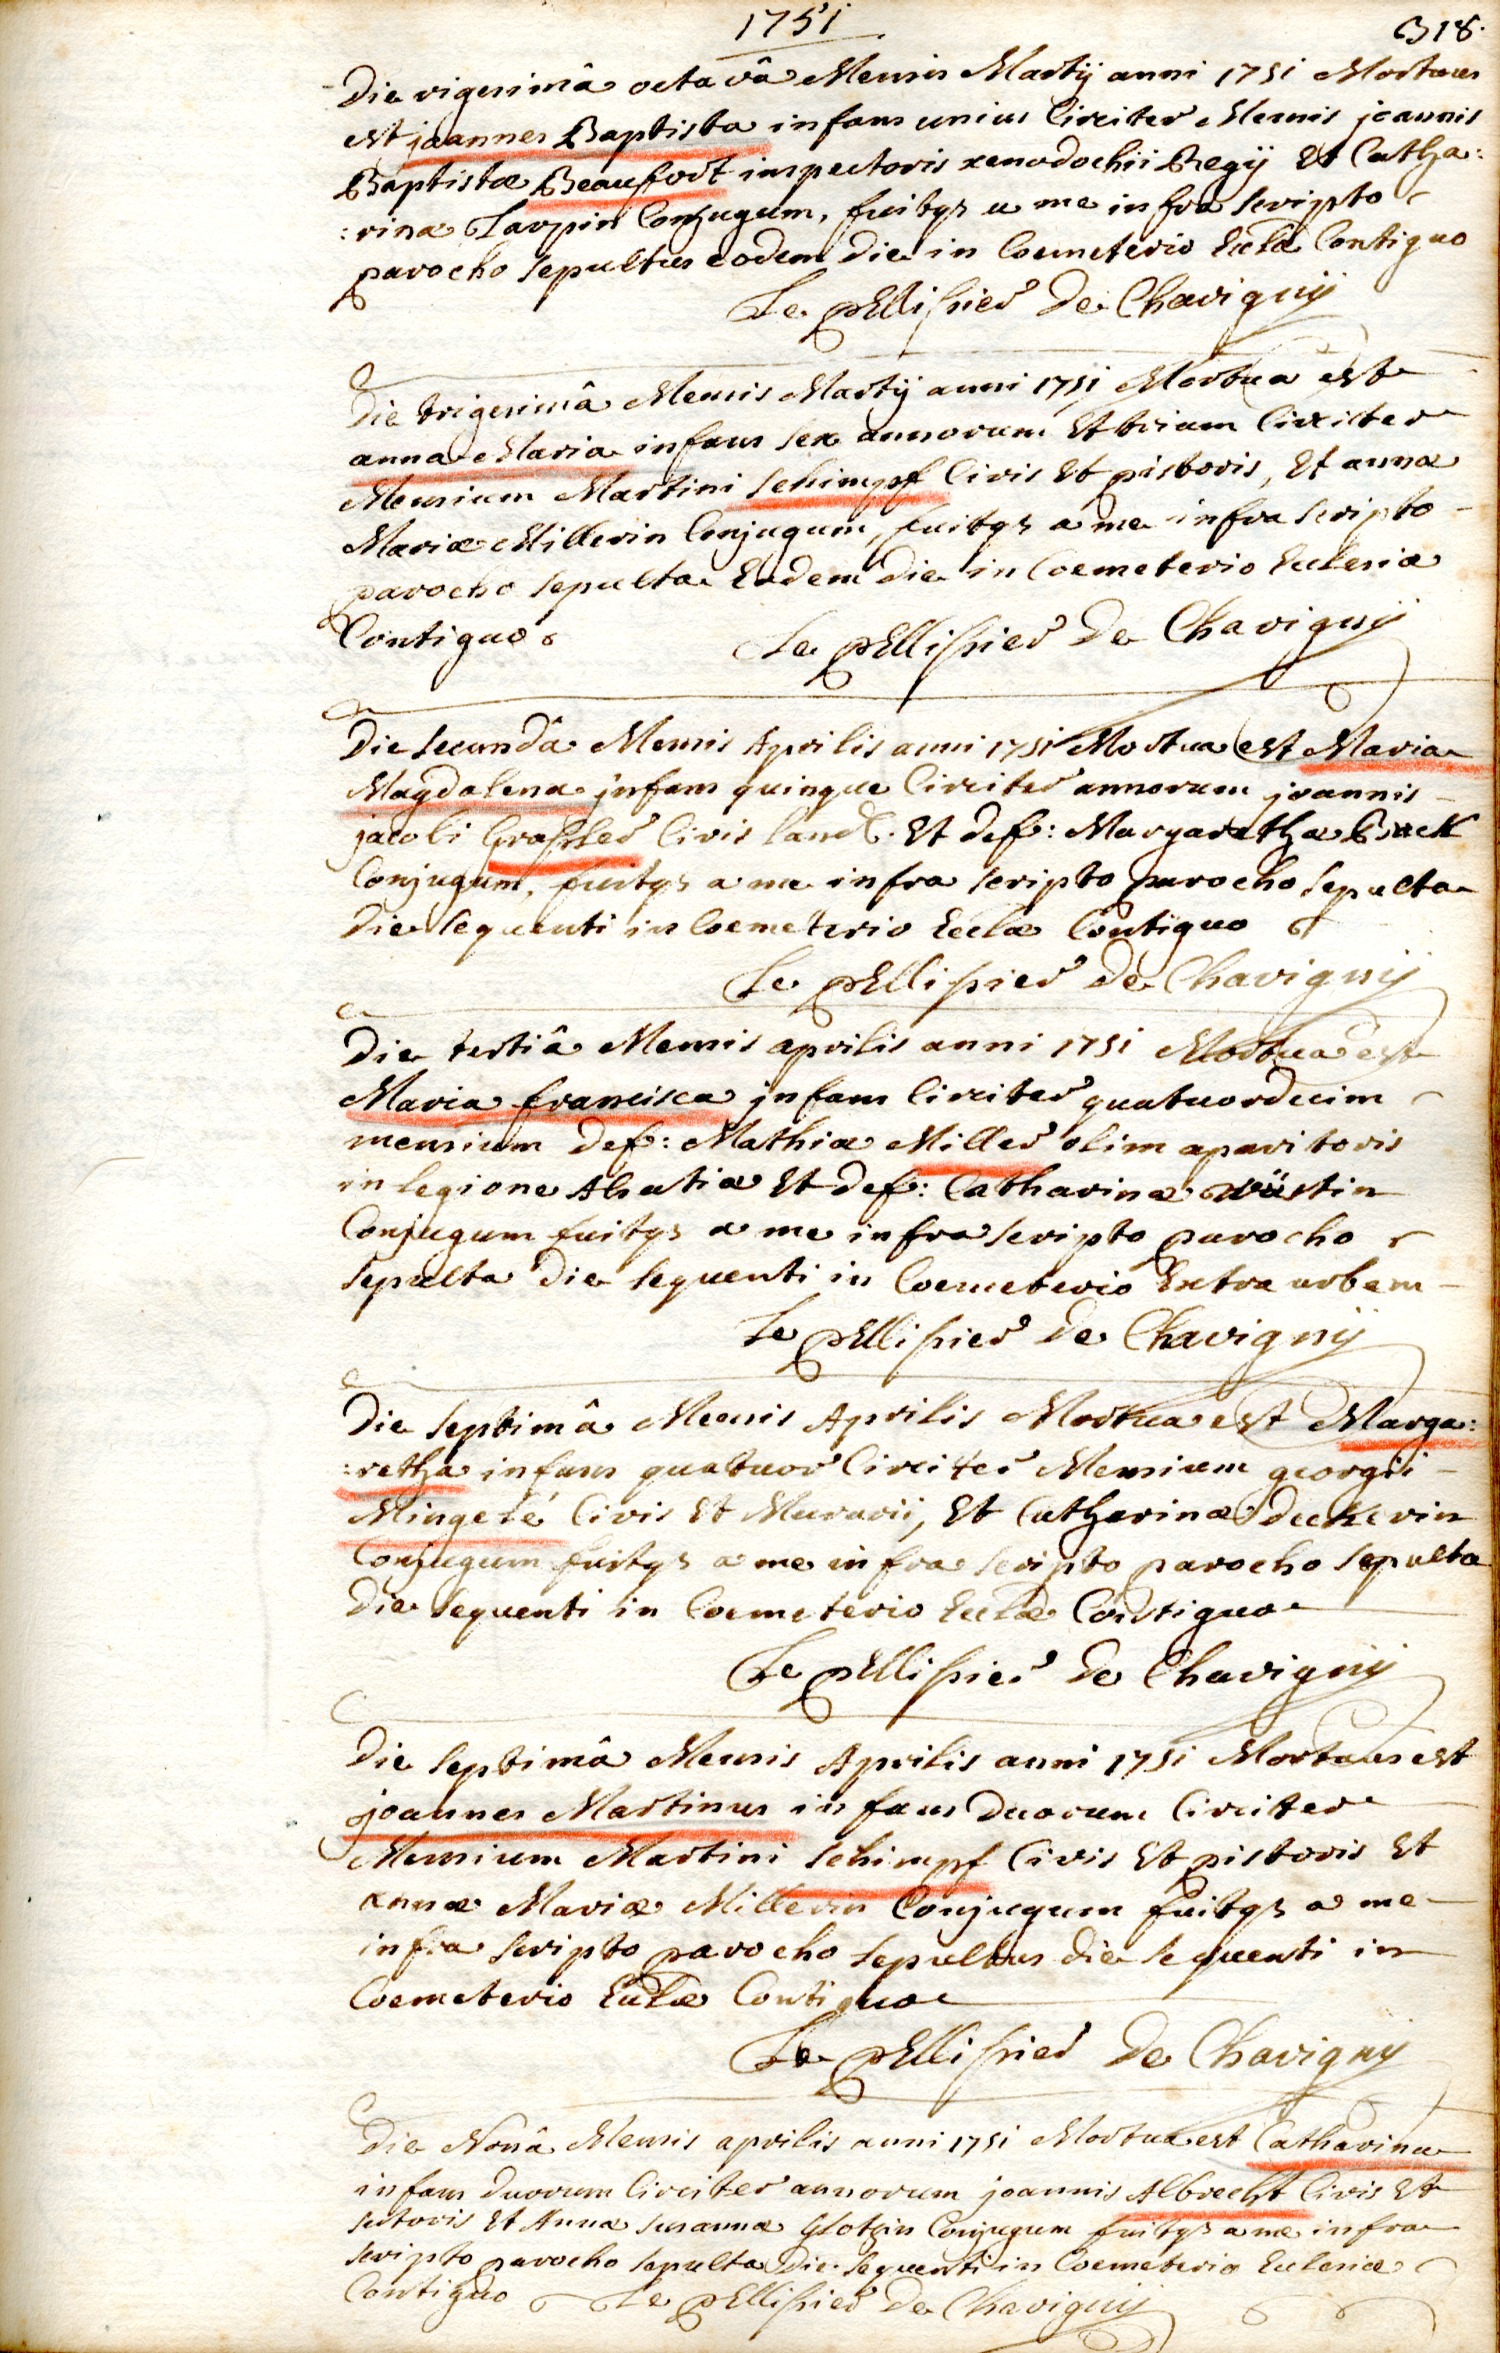 1751
318.
Die vigesimâ octavâ Mensis Martij anni 1751 Mortuus
est joannes Baptista infans unius Circiter Mensis joannis
Baptistæ Beaufort inspectoris xenodochii Regij Et Catha:
:rinæ Larpin Conjugum, fuitqs a me infra scripto
parocho sepultus eodem die in Coemeterio Eclæ Contiguo
Le pEllissier De Chavignij
Die trigesimâ Mensis Martij anni 1751 Mortua est
anna Maria infans sex annorum Et trium Circiter
Mensium Martini schimpf Civis Et pistoris, Et annæ
Mariæ Millerin Conjugum, fuitqs a me infra scripto
parocho sepulta Eadem die in Coemeterio Ecclesiæ
Contiguo
Le pEllissier De Chavignij
Die secundâ Mensis Aprilis anni 1751 Mortua est Maria
Magdalena jnfans quinque Circiter annorum joannis
jacobi Grassler Civis land. Et def: Margarethæ Buck
Conjugum, fuitqs a me infra scripto parocho sepulta
Die sequenti in Coemeterio Eclæ Contiguo
Le pEllissier De Chavignij
Die tertiâ Mensis aprilis anni 1751 Mortua est
Maria francisca jnfans Circiter quatuordecim
mensium def: Mathiæ Miller olim aparitoris
in legione Alsatiæ Et def: Catharinæ wüstin
Conjugum fuitqs a me infra scripto parocho
sepulta die sequenti in Coemeterio Extra urbem
Le pEllissier De Chavignij
Die septimâ Mensis Aprilis Mortua est Marga:
:retha infans quatuor Circiter Mensium georgii
Mingelé Civis Et Murarii, Et Catharinæ deckerin
Conjugum fuitqs a me infra scripto parocho sepulta
Die sequenti in Coemeterio Eclæ Contiguo
Le pEllissier De Chavignij
Die septimâ Mensis Aprilis anni 1751 Mortuus est
joannes Martinus infans duorum Circiter
Mensium Martini schimpf Civis Et pistoris Et
annæ Mariæ Millerin Conjugum fuitqs a me
infra scripto parocho sepultus die sequenti in
Coemeterio Eclæ Contiguo
Le pEllissier De Chavignij
Die Nonâ Mensis aprilis anni 1751 Mortua est Catharina
infans duorum Circiter annorum joannis Albrecht Civis Et
sutoris Et Annæ susannæ Glotzin Conjugum fuitqs a me infra
scripto parocho sepulta Die sequenti in Coemeterio Ecclesiæ
Contiguo Le pEllissier De Chavignij